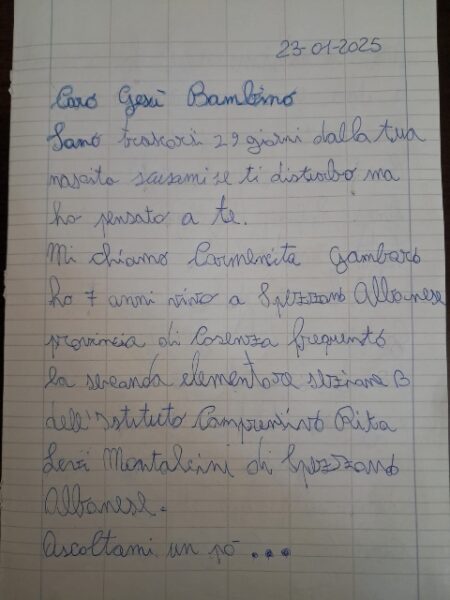 23-01-2025
Caro Gesù Bambino
Sono trascorsi 29 giorni dalla tua
nascita scusami se ti disturbo ma
ho pensato a te.
Mi chiamo Carmencita Gambaro
ho 7 anni vivo a Spezzano Albanese
provincia di Cosenza frequento
la seconda elementare sezione B
dell'Istituto Comprensivo Rita
Levi Montalcini di Spezzano
Albanese.
Ascoltami un pò ...